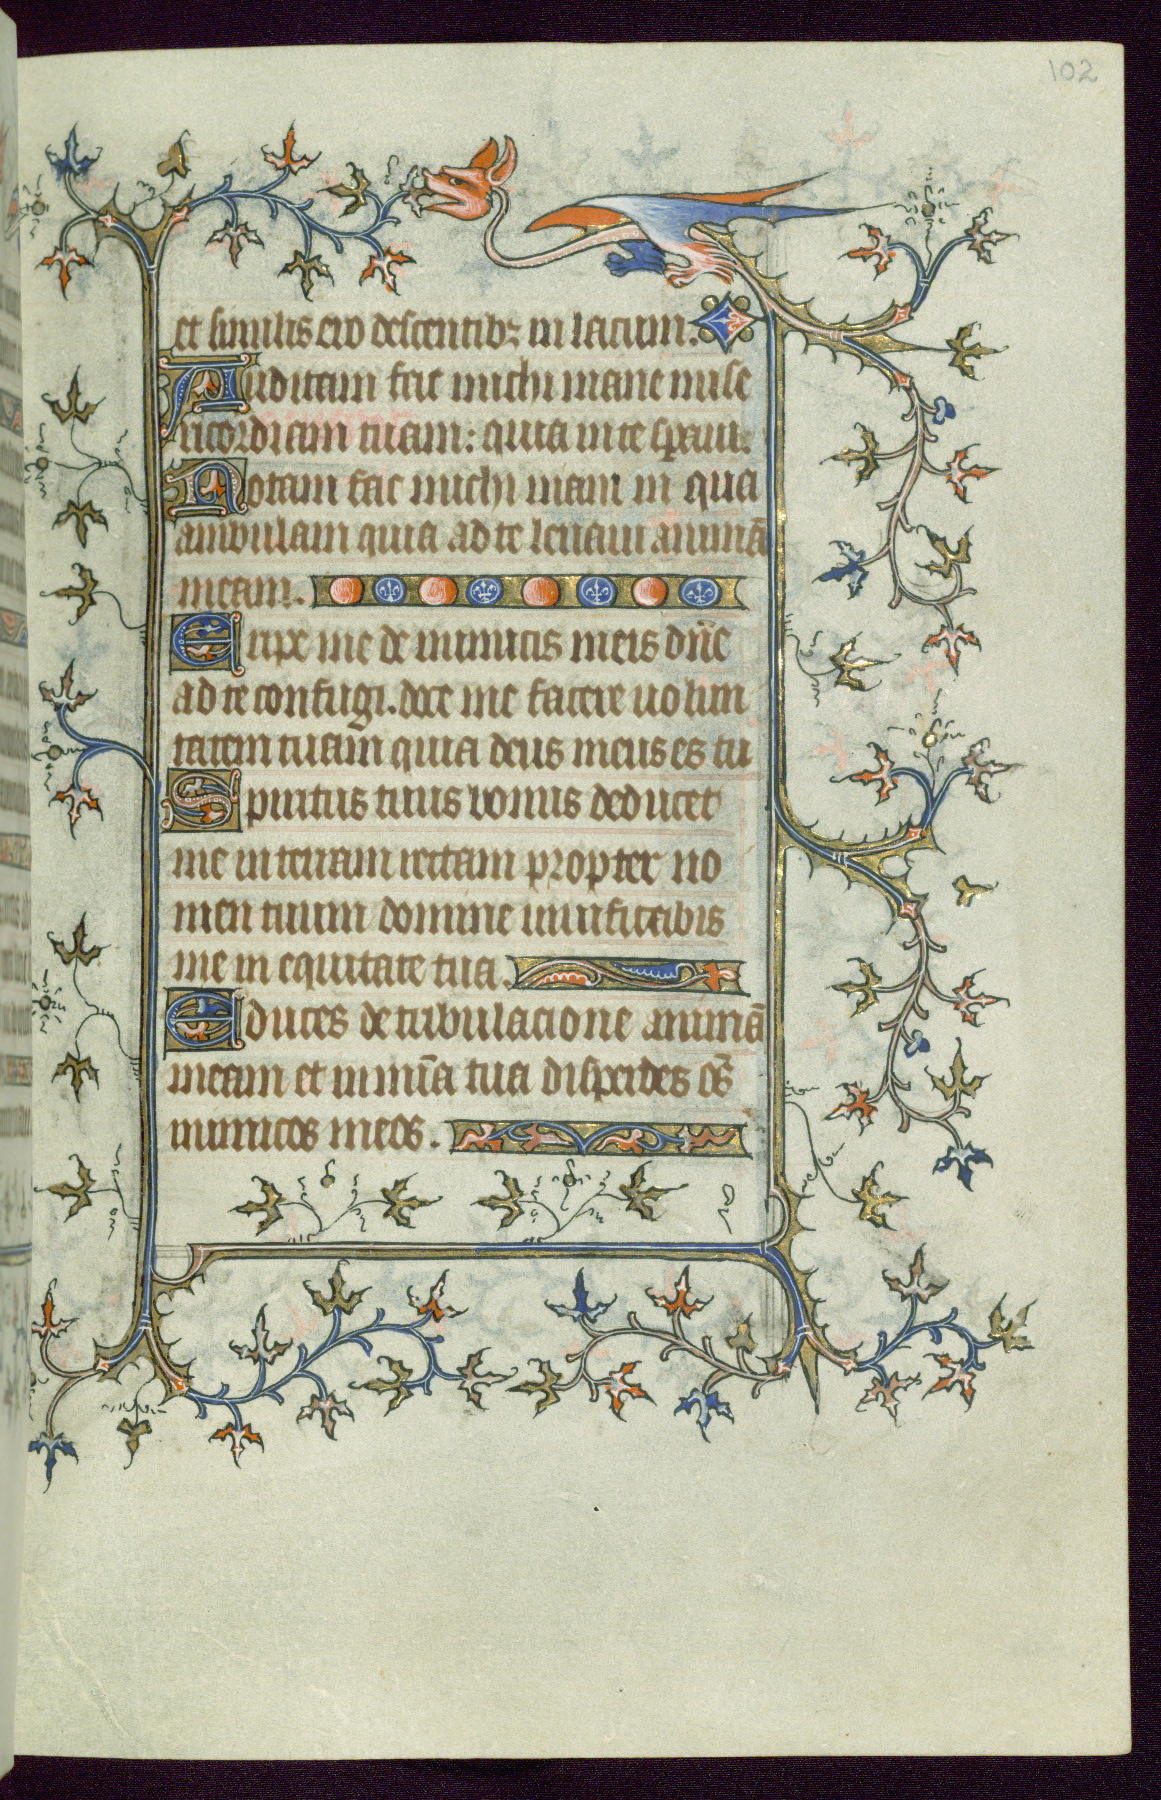 102
et similis ero descentibꝫ in lacum.
Auditam fac michi mane mise
ricordiam tuam: quia in te speraui.
Notam fac michi uiam in qua
ambulam quia ad te leuaui animā
meam.
Eripe me de inimicis meis dn̄e
ad te confugi. doce me facere uolun
tatem tuam quia deus meus es tu
Spiritus tuus bonus deducet
me in terram rectam propter no
men tuum domine uiuificabis
me in equitate tua.
Educes de tribulacione animā
meam et in mīa tua disperdes oēs
inimicos meos.